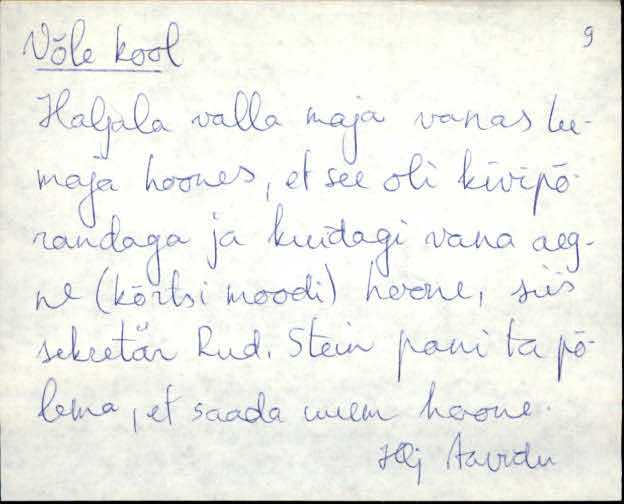 Võle kool
9
Haljala valla maja vanas
maja hoones, et see oli kivipõ-
randaga ja kuidagi vana aeg-
ne (kõrtsi moodi) hoone, siis
sekretär Rud. Stein pani ta põ-
lema, et saada uuem hoone.
Hlj